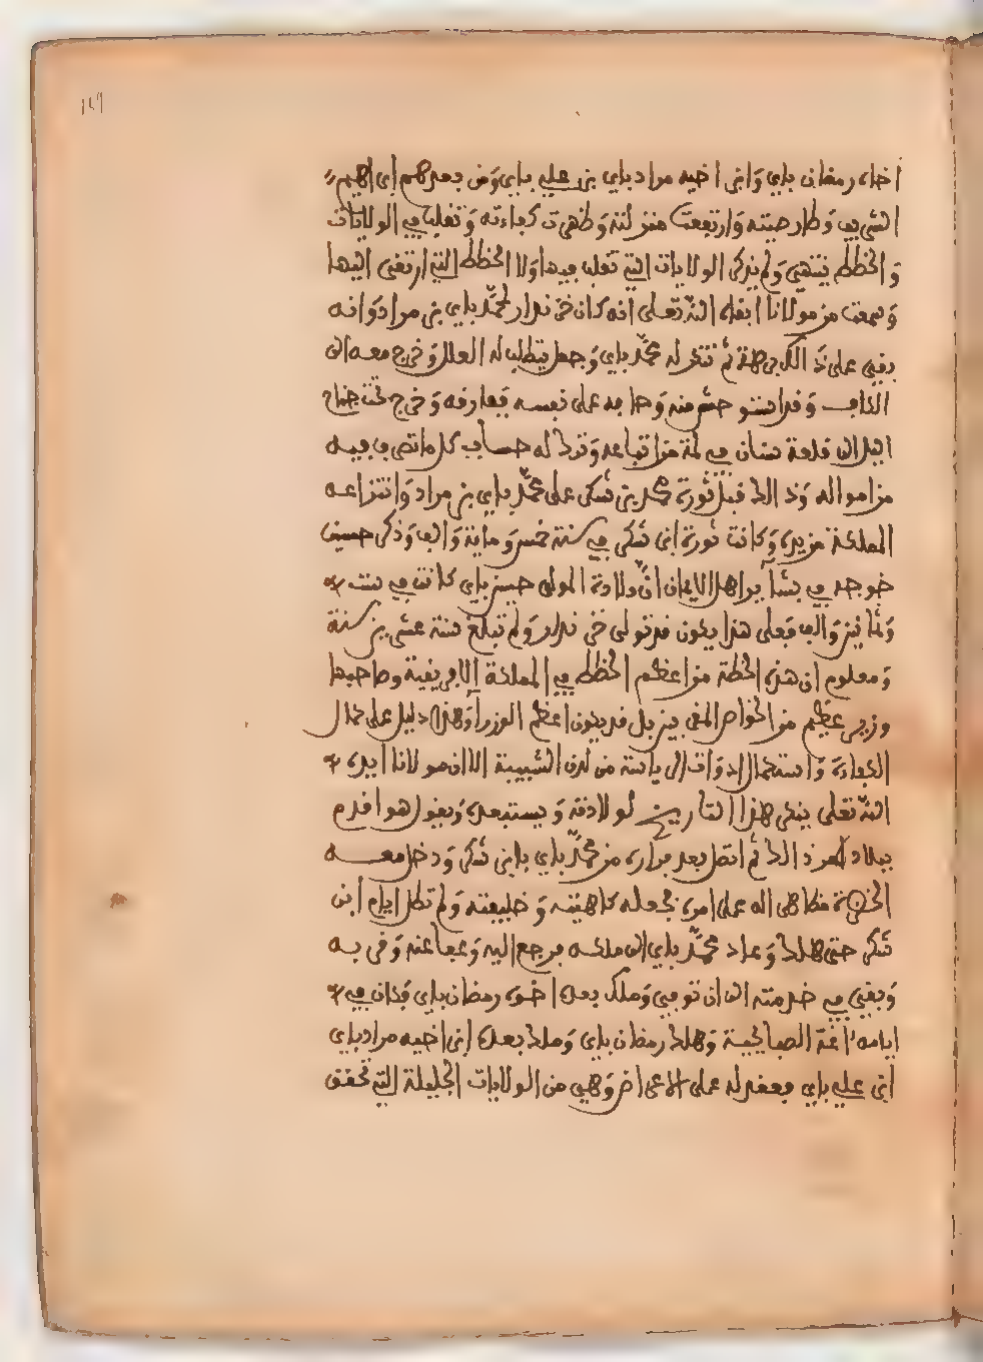 ١٤٩
اخاه رمضان باي وَابن اخيه مراد باي بن علي باي وَمن بعدهم ابراهيم
الشريف وَطار صيته وَارتفعت منزلته وَظهرت كفاءته وَتقلب في الولايات
وَالخطط ينتهي وَلم يذكر الولايات التي تقلب فيها وَلا الخطط التي ارتقى اليها
وَسمعت من مولانا ابقاه الله تعلى انه كان خزندار لمحمّد باي بن مراد وَانه
بقي على ذالك برهة ثم تنكر له محمّد باي وَجعل يتطلب له العلل وَخرج معه الى
الكاف وَقد استوحش منه وَخافه على نفسه ففارقه وَخرج تحت جناح
اليل الى قلعة سنان في لمة من اتباعه وَترك له حساب كل ما تصرف فيه
من امواله وَذالك قبل ثورة محمد بن شكر على محمّد باي بن مراد وَانتزاعه
المملكة من يده وَكانت ثورة ابن شكر في سنة خمس وَماية وَالف وَذكر حسين
خوجه في بشاير اهل الايمان انّ ولادة المولى حسين باي كانت في سنت
وَثمانين وَالف فعلى هذا يكون قد تولى خزندار وَلم تبلغ سنه عشرين سنة
وَمعلوم ان هذه الخطة من اعظم الخطط في المملكة الافريقية وصاحبها
وزير عظيم من الخواص المقربين بل قد يكون اعظم الوزرا وَهذا دليل على كمال
الكفاءة وَاستكمال ادوات الرياسة من لدن الشبيبة الا ان مولانا ايده
الله تعلى ينكر هذا التاريخ لولادته وَيستبعده وَيقول هو اقدم
ميلادا من ذالك ثم اتصل بعد فراره من محمّد باي بابن شكر وَدخل معه
الحضرة مظاهرا له على امره فجعله كاهيته وَخليفته وَلم تطل ايام ابن
شكر حتى هلك وَعاد محمّد باي الى ملكه فرجع اليه وَعفا عنه وَقربه
وَبقي في خدمته الى ان توفي وَملك بعده اخوه رمضان باي فكان في
ايامه اغة الصبايحية وَهلك رمضان باي وَملك بعده ابن اخيه مراد باي
ابن علي باي فعقد له على الاعراض وَهي من الولايات الجليلة التي تحقق